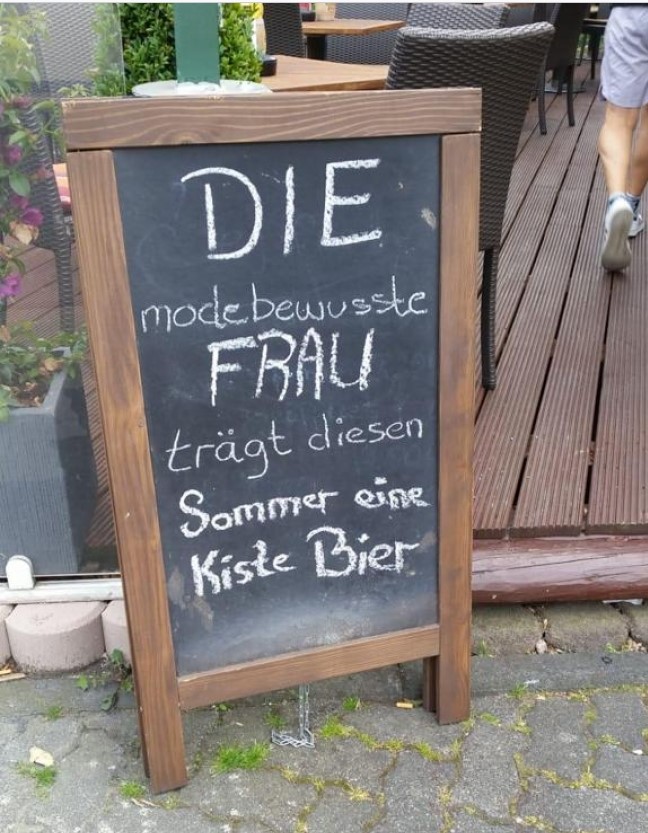 DIE
modebewusste
FRAU
trägt diesen
Sommer eine
Kiste Bier